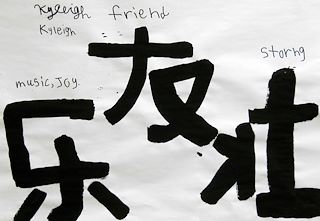 Kyleigh friend
Kyleigh
友
storng
壮
music, Joy.
乐